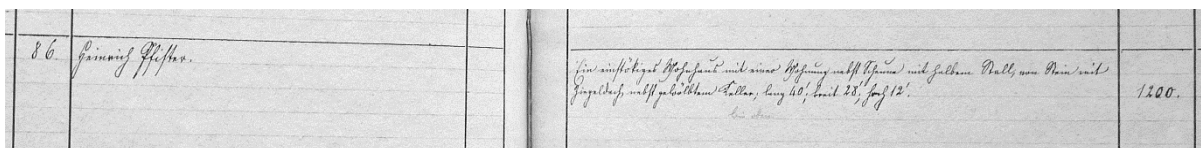 86. Heinrich Pfister.
Ein einstökiges Wohnhaus mit einer Wohnung nebst Scheune mit halbem Stall, von Stein mit
Ziegeldach, nebst gewölbtem Keller, lang 40', breit 28', hoch 12'.
1200.